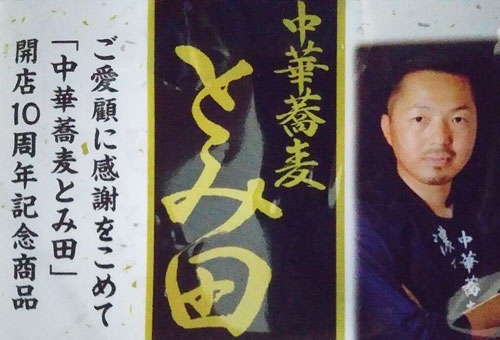 ご愛顧に感謝をこめて
「中華蕎麦とみ田」
開店10周年記念商品
中華蕎麦
とみ田
中華蕎